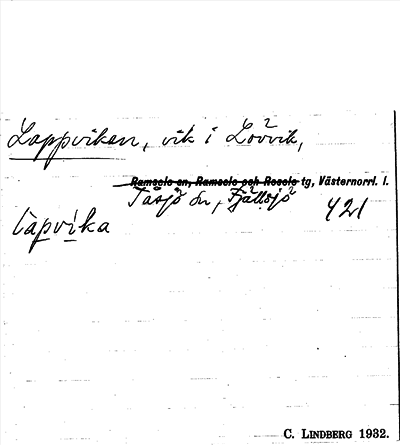 Lappviken, vik i Lövvik,
Ramsele sn, Ramsele och Resele tg, Västernorrl. l.
Tåsjö sn, Fjällsjö 421
làpvika
C. LINDBERG 1932.